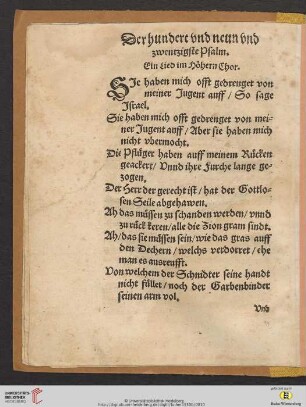 Der hundert vnd neun vnd
zwentzigste Psalm.
Ein Lied im Höhern Chor.
SIe haben mich offt gedrenget von
meiner Jugent auff / So sage
Israel.
Sie haben mich offt gedrenget von mei-
ner Jugent auff / Aber sie haben mich
nicht vbermocht.
Die Pflüger haben auff meinem Rücken
geackert / Vnnd ihre Furche lange ge-
zogen.
Der Herr der gerecht ist / hat der Gottlo-
sen Seile abgehawen.
Ah das müssen zu schanden werden / vnnd
zu rück keren / alle die Zion gram sindt.
Ah / das sie müssen sein / wie das gras auff
den Dechern / welchs verdorret / ehe
man es ausreufft.
Von welchem der Schnitter seine handt
nicht füllet / noch der Garbenbinder
seinen arm vol.
Vnd
UNIVERSITÄTS-
BIBLIOTHEK
HEIDELBERG
© Universitätsbibliothek Heidelberg
Baden-Württemberg